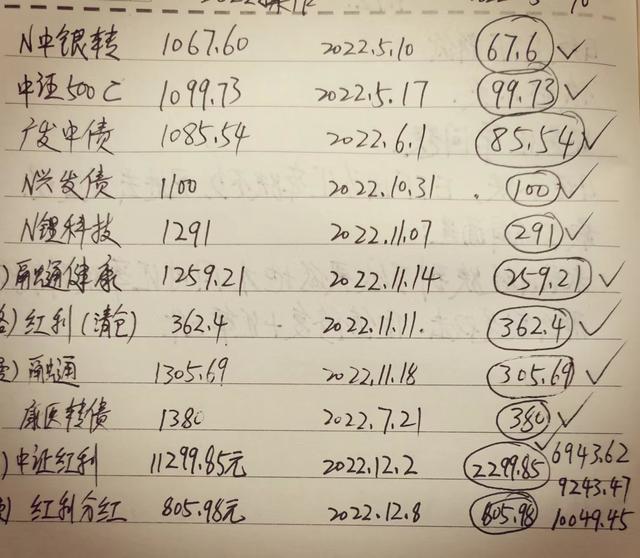 N中银转 1067.60 2022.5.10 67.6 ✓
中证500C 1099.73 2022.5.17 99.73 ✓
广发中债 1085.54 2022.6.1 85.54 ✓
N兴发债 1100 2022.10.31 . 100 ✓
N锂科技 1291 2022.11.07 291 ✓
)融通健康 1259.21 2022.11.14 259.21 ✓
)红利(清仓) 362.4 2022.11.11. 362.4 ✓
)融通 1305.69 2022.11.18 305.69 ✓
康医转债 1380 2022.7.21 380 ✓
)中证红利 11299.85元 2022.12.2 2299.85 ✓ 6943.62
9243.47
) 红利分红 805.98元 2022.12.8 805.98 10049.45